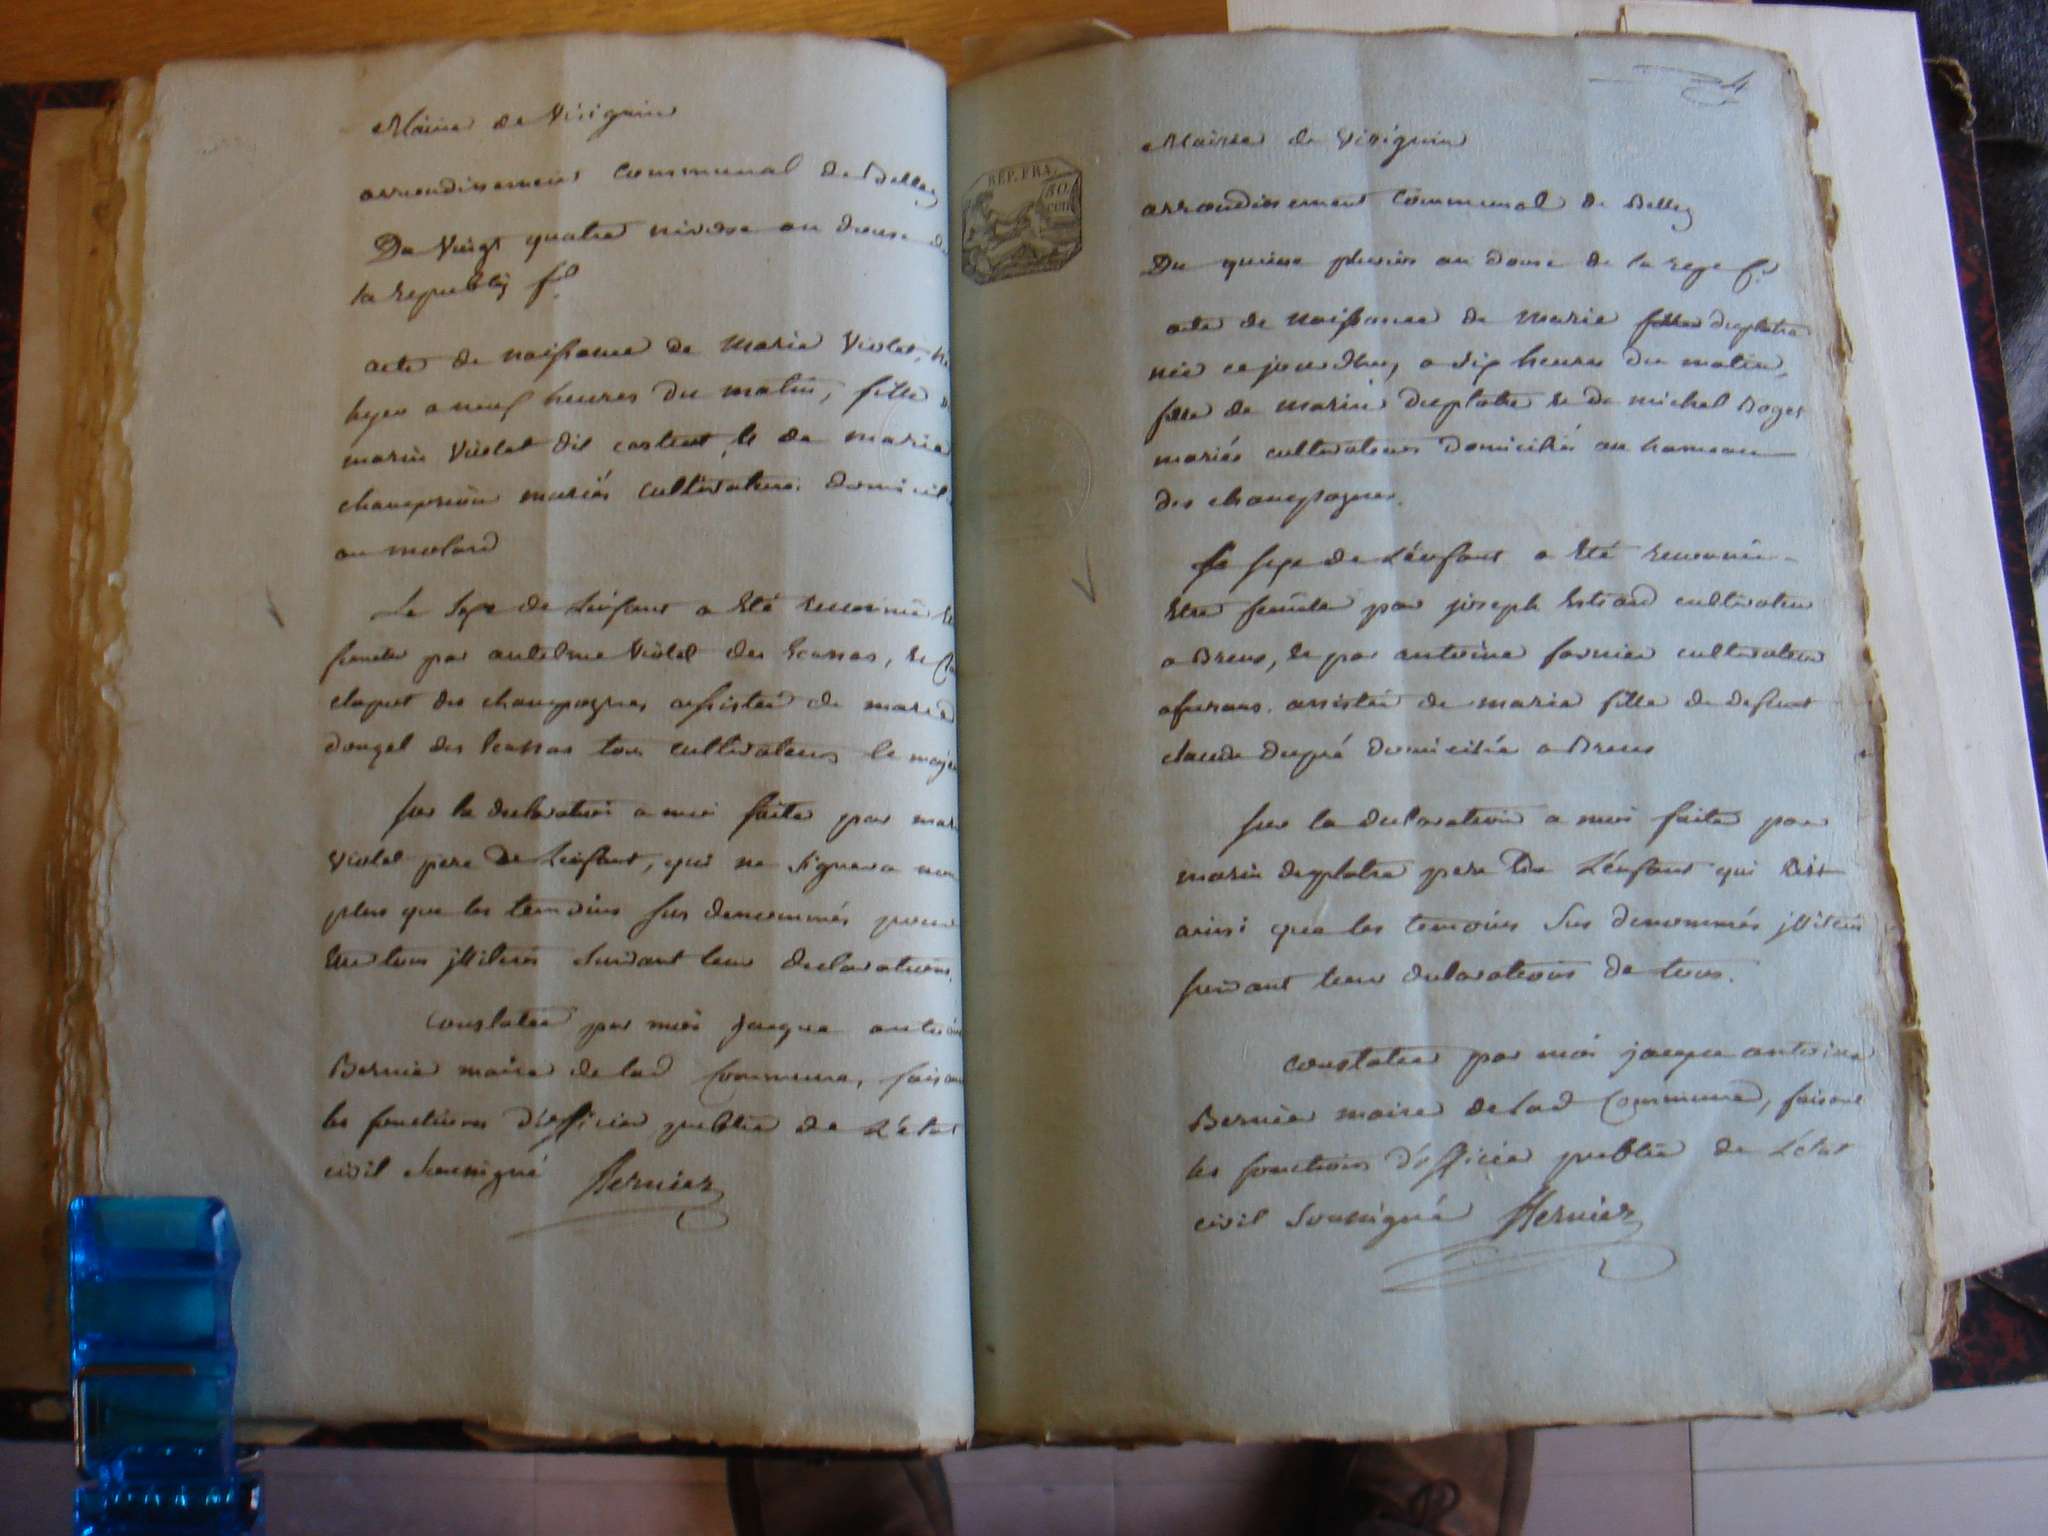 Mairie de Virignin
arrondissement Communal de Belley
Du Vingt quatre nivose an douse de
la republiq f.
acte de naissance de Marie Violet, né
hyer a neuf heures du matin, fille de
marin Violet dit et de marie
mariés cultivateurs domicil
au molard
Le Sexe de L'énfant a été reconnu
femelle par antelme Violet des
clapet des champagnes assistés de marie
des tous cultivateurs
sur la declaration a moi faite par mar
Violet pere de L'énfant, qui ne signera non
plus que les temoins sus denommés pour
être tous illiterés suivant leur declarations.
Constatée par moi Jacque antoine
Bernier maire de lad Commune, faisant
les fonctions d'officier public de L'état
civil soussigné Bernier
4
Mairie de Virignin
REP. FRA.
50.
CEN
arrondissement Communal de Belley
Du quinse pluvios an douse de la rep f.
acte de Naissance de Marie fille duplatre
née ce jourdhuy a six heures du matin,
fille de marin duplatre et de michel Roget
mariés cultivateurs domiciliés au hameau
des champagnes.
Le sexe de L'énfant a été reconnu
être femelle par joseph cultivateur
a Brens, et par antoine fornier cultivateur
afurans. assistés de marie fille de defunt
claude dupré domiciliée a Brens
sur la declaration a moi faite par
marin duplatre pere de L'énfant qui est
ainsi que les temoins sus denommés illiterés
suivant leur declarations de tous.
constatée par moi jacque antoine
Bernier maire de lad Commune, faisant
les fonctions d'officier public de L'état
civil soussigné Bernier